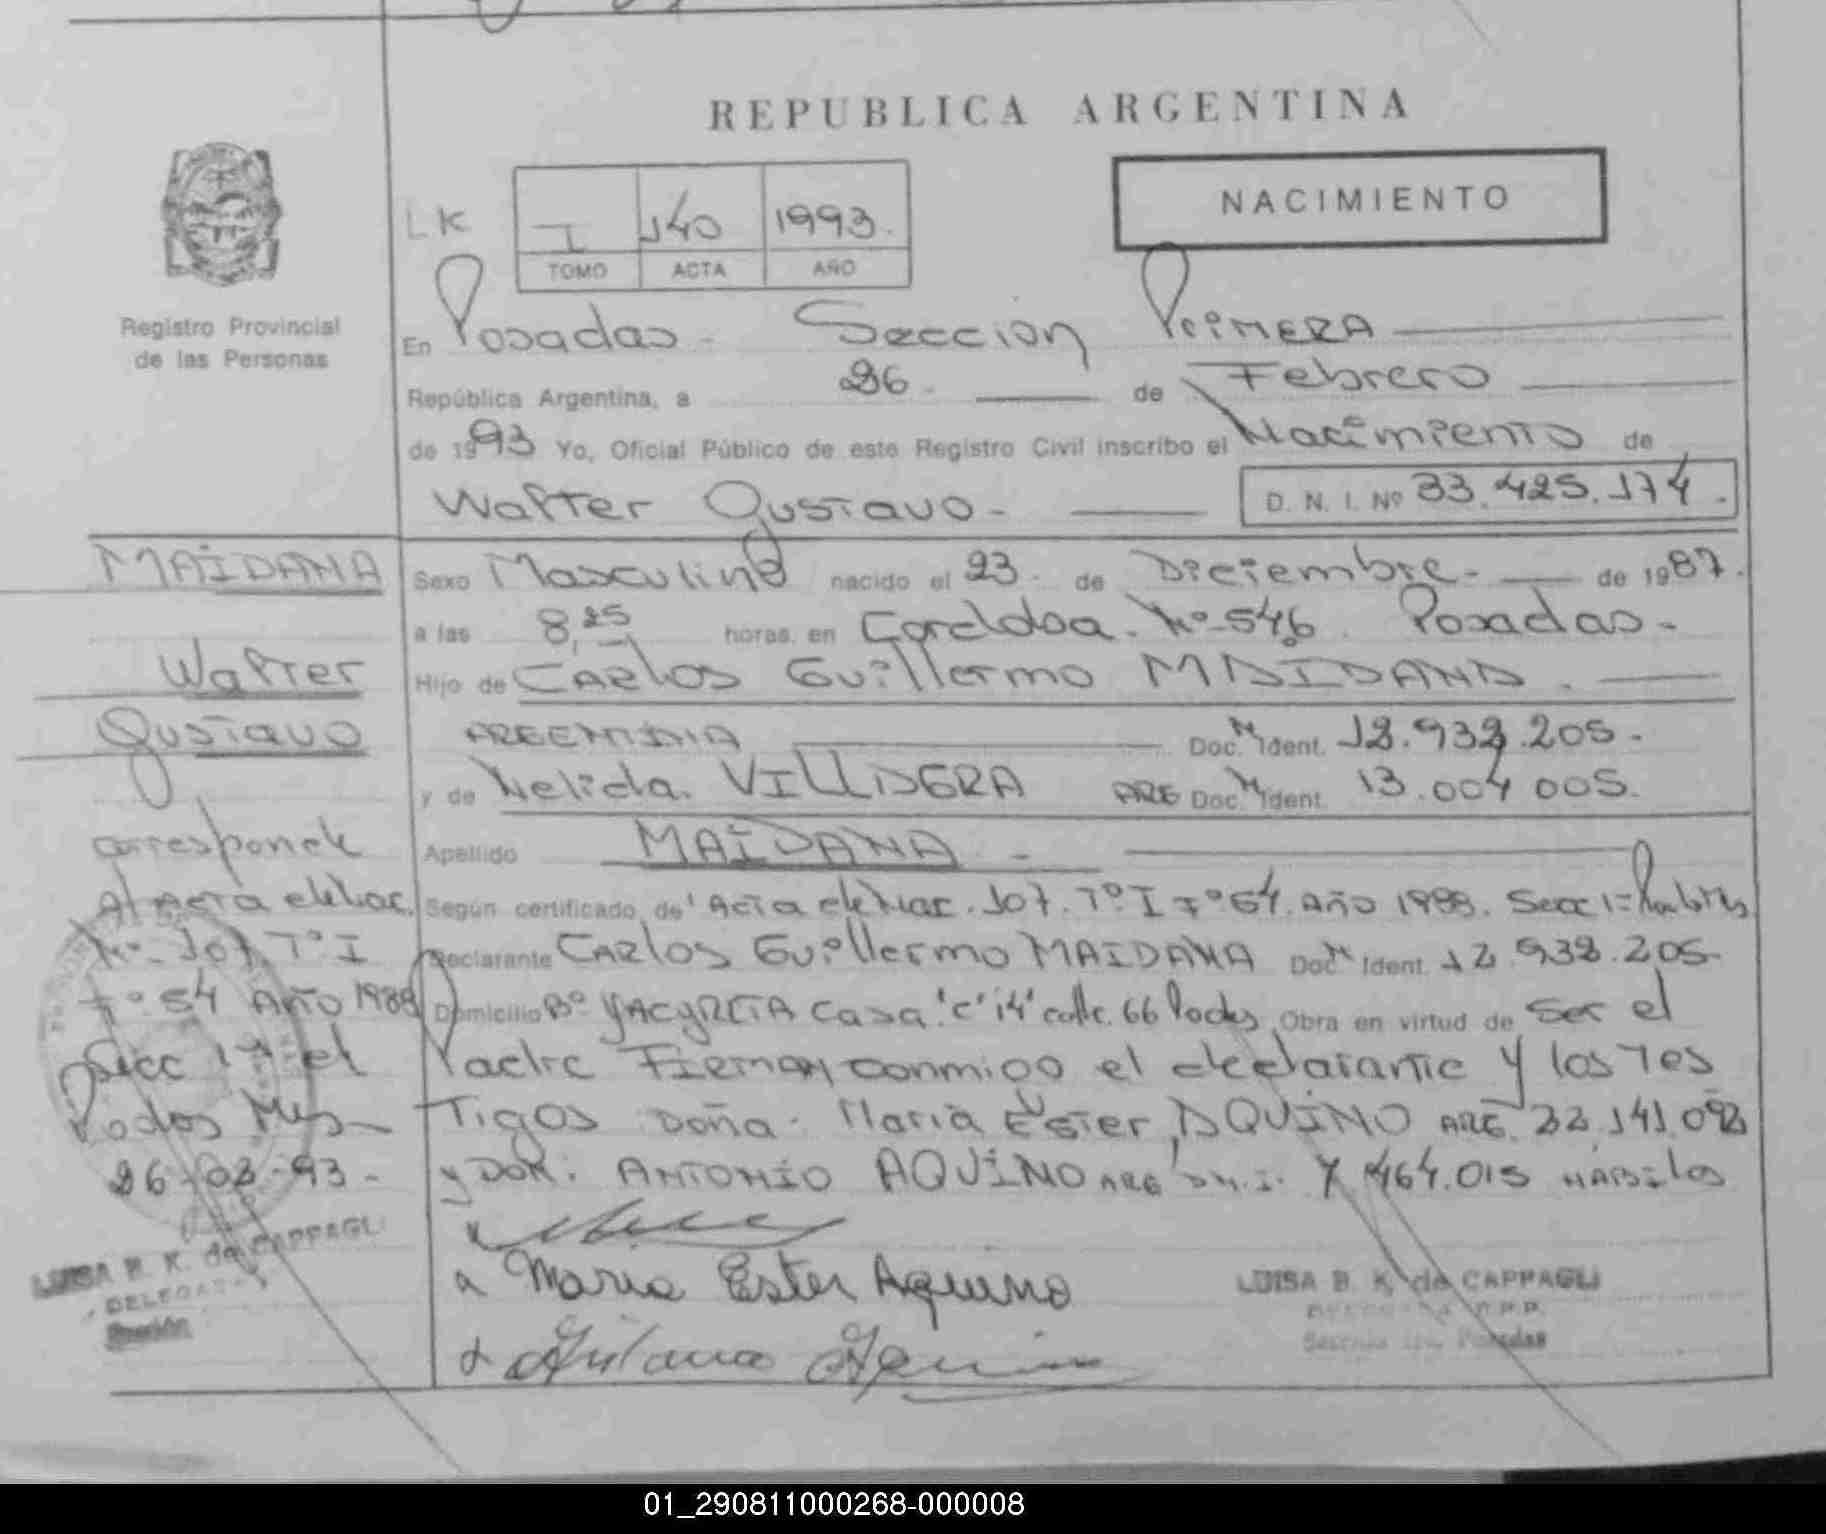 REPUBLICA ARGENTINA
NACIMIENTO
LK
I 140 1993.
TOMO ACTA AÑO
Registro Provincial
de las Personas
En Posadas - Seccion Primera
República Argentina, a 26 - de Febrero
de 1993 Yo, Oficial Público de este Registro Civil inscribo el Nacimiento de
Walter Gustavo - D. N. I. Nº 33.425.174.
MAIDANA
Walter
Gustavo
Sexo Masculino nacido el 23 - de Diciembre - de 1987.
a las 8,25 horas, en Cordoba. Nº 546. Posadas -
Hijo de CARlos Guillermo MAIDANA.
ARGENTINA Doc. M Ident. 12.932.205.
y de Nelida. VILLDERA ARG Doc. M Ident. 13.004 005.
Apellido MAIDANA -
Según certificado de Acta de Nac. 107. Tº I Fº 54. Año 1988. Secc 1ª
Declarante CARlos Guillermo MAIDANA Doc. M Ident. 12.932.205-
Domicilio Bº YACYRETA Casa "C" 14 calle. 66 Podas Obra en virtud de Ser el
Padre Firman conmigo el declarante y los Tes
Tigos Doña. Maria Ester AQUINO ARG.
y DON. ANTONIO AQUINO ARG D.N.I. 7.464.015 HABiles
corresponde
Al Acta de Nac.
Nº 107. Tº I
Fº 54 AÑO 1988
Secc 1ª el
Podas Mns
26-02-93-
LUISA B. K. de CAPPAGLI
DELEGADA
Maria Ester Aquino
LUISA B. K. de CAPPAGLI
Posadas
01_290811000268-000008